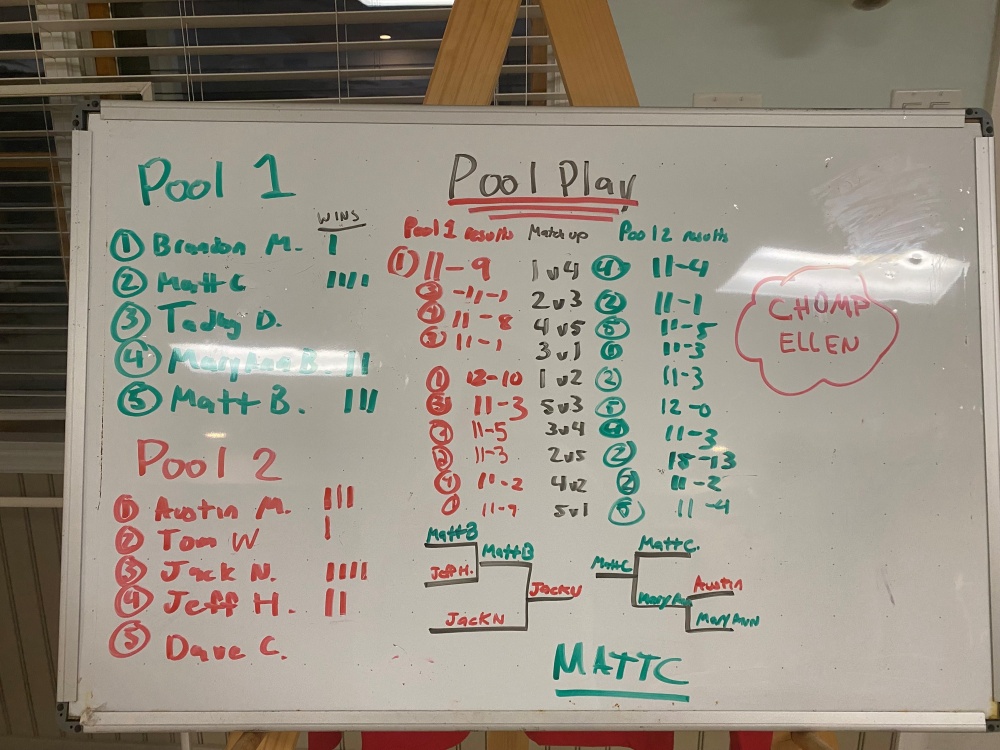 Pool 1
WINS
① Brandon M. I
② Matt C IIII
③ Tadhg D.
④ B. II
⑤ Matt B. III
Pool 2
① Austin M. III
② Tom W I
③ Jack N. IIII
④ Jeff H. II
⑤ Dave C.
Pool Play
Pool 1 results Matchup Pool 2 results
① 11-9 1v4 ④ 11-4
2v3 ② 11-1
11-8 4v5 ⑤
11-1 3v1 11-3
① 12-10 1v2 ② 11-3
11-3 5v3 ⑤ 12-0
11-5 3v4 11-3
11-3 2v5 ② 18-13
11-2 4v2 ② 11-2
11-9 5v1 ⑤ 11-4
Matt B
Matt B
Jeff H.
Jack N
Jack N
Matt C.
Matt C
Austin
Mary Ann
Mary Ann
MATTC
CHOMP
ELLEN